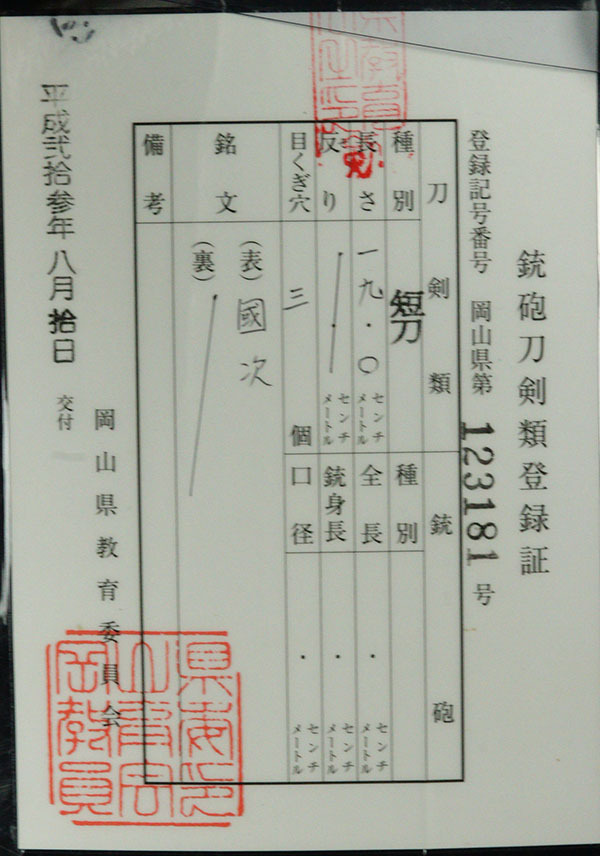 銃砲刀剣類登録証
登録記号番号 岡山県第 123181 号
刀剣類 銃砲
種別 短刀 種別
長さ 一九・〇 センチメートル 全長 ・ センチメートル
反り ・ センチメートル 銃身長 ・ センチメートル
目くぎ穴 三 個 口径 ・ センチメートル
銘文 (表) 國次
(裏)
備考
岡山県教育委員会
平成弐拾参年八月拾日 交付